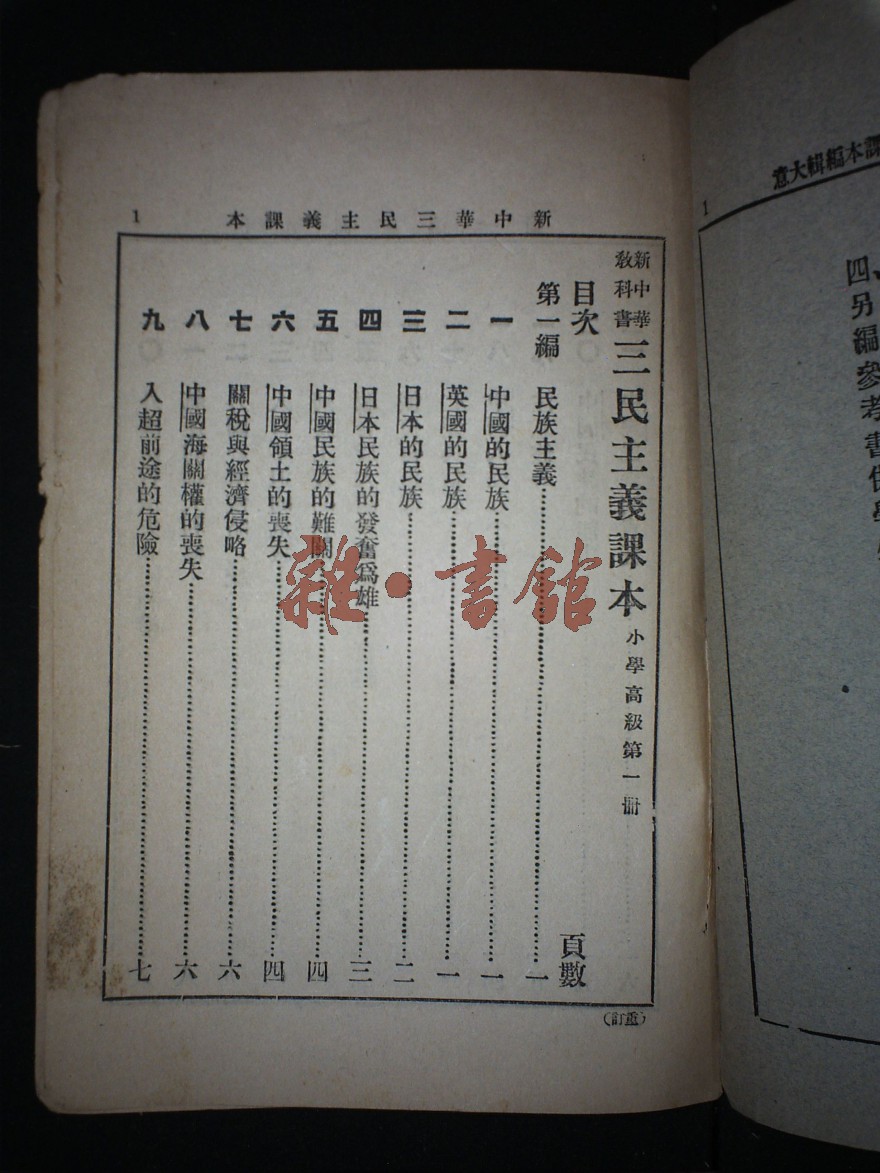 新中華三民主義課本 1
新中華
教科書
三民主義課本 小學高級第一冊
目次 頁數
第一編 民族主義 一
一 中國的民族 一
二 英國的民族 一
三 日本的民族 二
四 日本民族的發奮爲雄 三
五 中國民族的難關 四
六 中國領土的喪失 四
七 關稅與經濟侵略 六
八 中國海關權的喪失 六
九 入超前途的危險 七
(重訂)
雜·書館
課本編輯大意
1
四、另編參考書